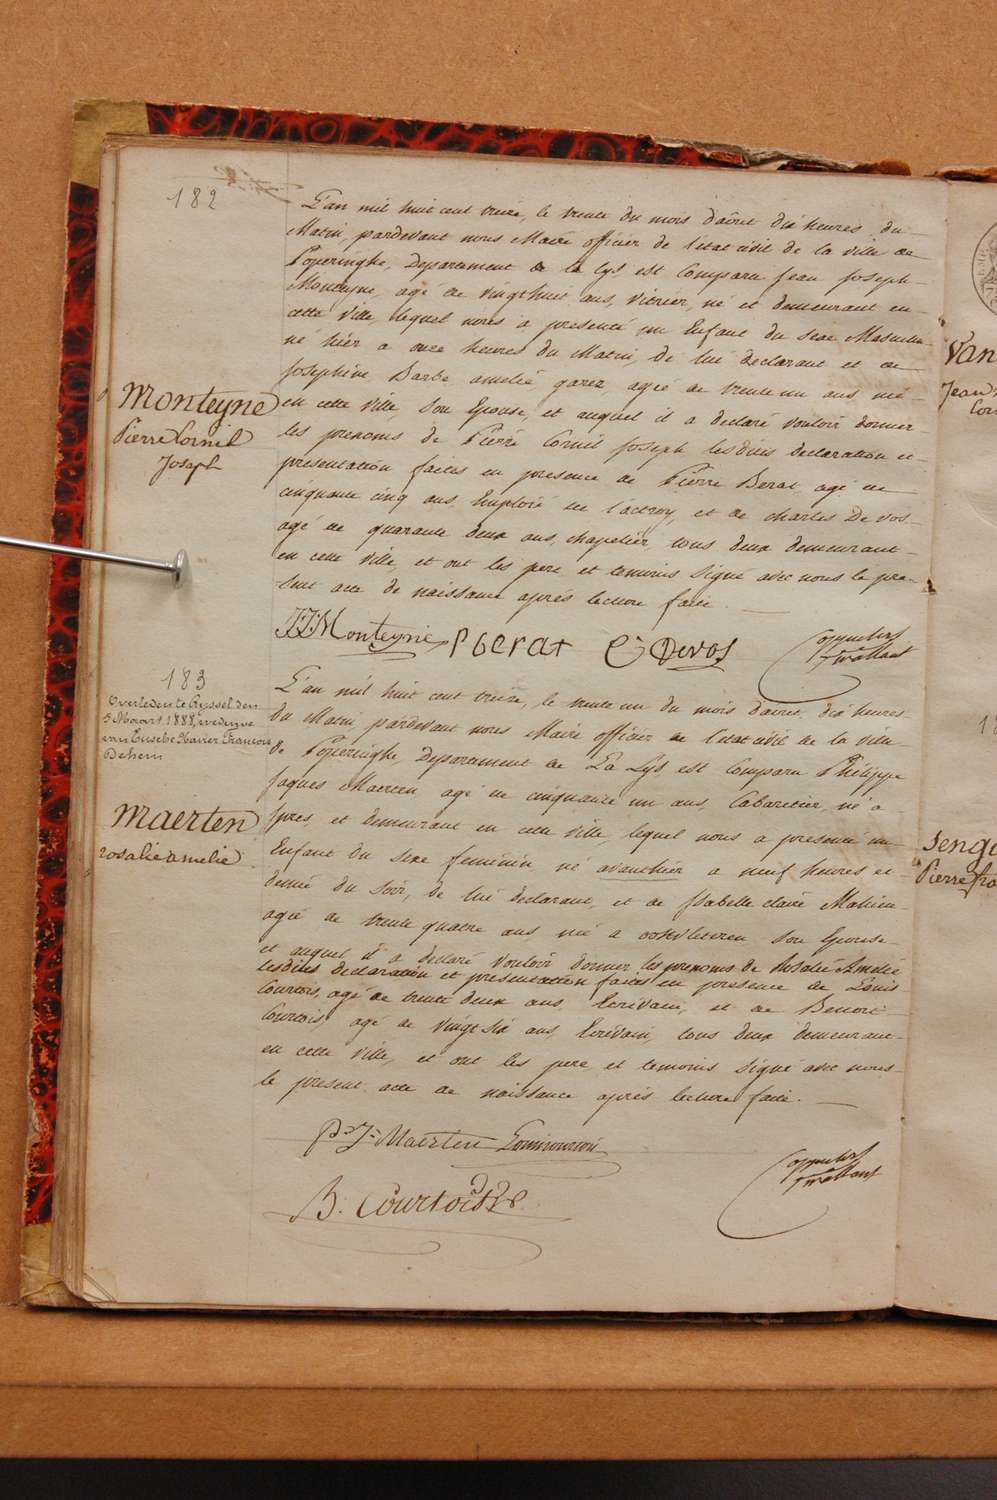 182
L'an mil huit cent treize, le trente du mois d'août dix heures du
Matin, pardevant nous Maire officier de l'état civil de la ville de
Poperinghe, Departement de la Lys est Comparu Jean Joseph
Monteyne, agé de vingt huit ans, vitrier, né et demeurant en
cette ville, lequel nous a presenté un Enfant du sexe Masculin
né hier a onze heures du Matin, de lui declarant et de
Josephine Barbe amelie garez agée de trente un ans née
en cette ville, son Epouse, et auquel il a declaré vouloir donner
les prenoms de Pierre Cornil Joseph lesdites declaration et
presentation faites en presence de Pierre Berat, agé de
cinquante cinq ans, Emploié de l'octroy, et de charles Devos
agé de quarante deux ans, chapelier, tous deux demeurant
en cette ville, et ont les pere et temoins signé avec nous le pre-
sent acte de naissance après lecture faite
Monteyne
Pierre Cornil
Joseph
J:J: Monteyne P berat C: Devos
183
Overleden te Ryssel den
5 Maart 1888, weduwe
van Eusebe Xavier François
Dehem
L'an mil huit cent treize, le trente un du mois d'août, dix heures
du Matin pardevant nous Maire officier de l'état civil de la ville
de Poperinghe, Departement de La Lys est Comparu Philippe
Jaques Maerten agé de cinquante un ans, Cabaretier, né a
Ipres, et demeurant en cette ville, lequel nous a presenté un
Enfant du sexe feminin né avanthier a neuf heures et
demie du soir, de lui declarant, et de Isabelle claire Mahieu
agée de trente quatre ans née a oostvleteren son Epouse
et auquel il a declaré vouloir donner les prenoms de Rosalie Amelie
lesdites declaration et presentation faites en presence de Louis
Courtois, agé de trente deux ans, Ecrivain, et de Benoit
Courtois agé de vingt six ans, Ecrivain, tous deux demeurant
en cette ville, et ont les pere et temoins signé avec nous
le present acte de naissance après lecture faite.
Maerten
rosalie amelie
P:J: Maerten
B. Courtois
Van
Jean
Pierre fra